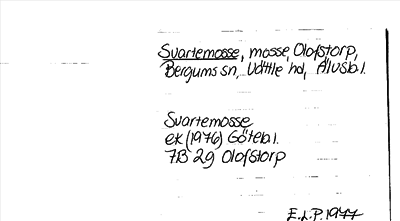 Svartemosse, mosse, Olofstorp,
Bergums sn, Vättle hd, Älvsb.l.
Svartemosse
ek (1976) Göteb.l.
7B 2g Olofstorp
E.L.P. 1977